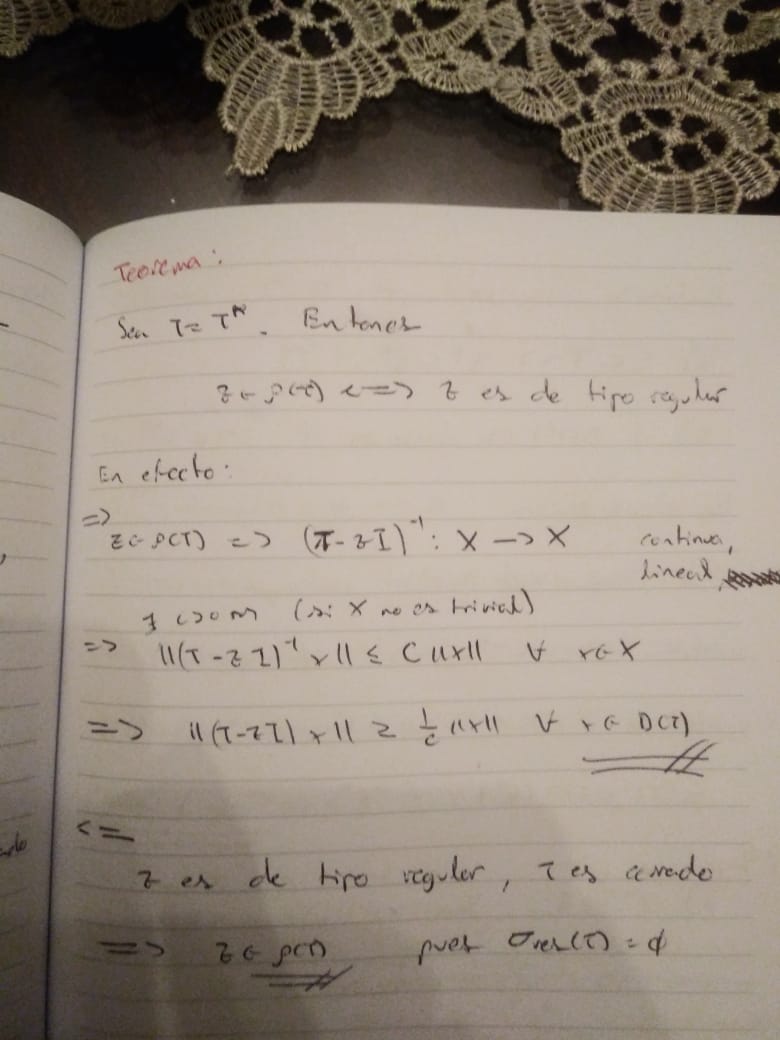 Teorema:
Sea T = T*. Entonces
z ∈ ρ(T) <=> z es de tipo regular
En efecto:
=>
z ∈ ρ(T) => (T - zI)⁻¹ : X -> X continua,
lineal,
∃ c>0 (si X no es trivial)
=> ||(T - zI)⁻¹ x|| ≤ C ||x|| ∀ x ∈ X
=> ||(T - zI) x|| ≥ 1/c ||x|| ∀ x ∈ D(T)
<=
z es de tipo regular, T es cerrado
=> z ∈ ρ(T) pues σres(T) = ϕ